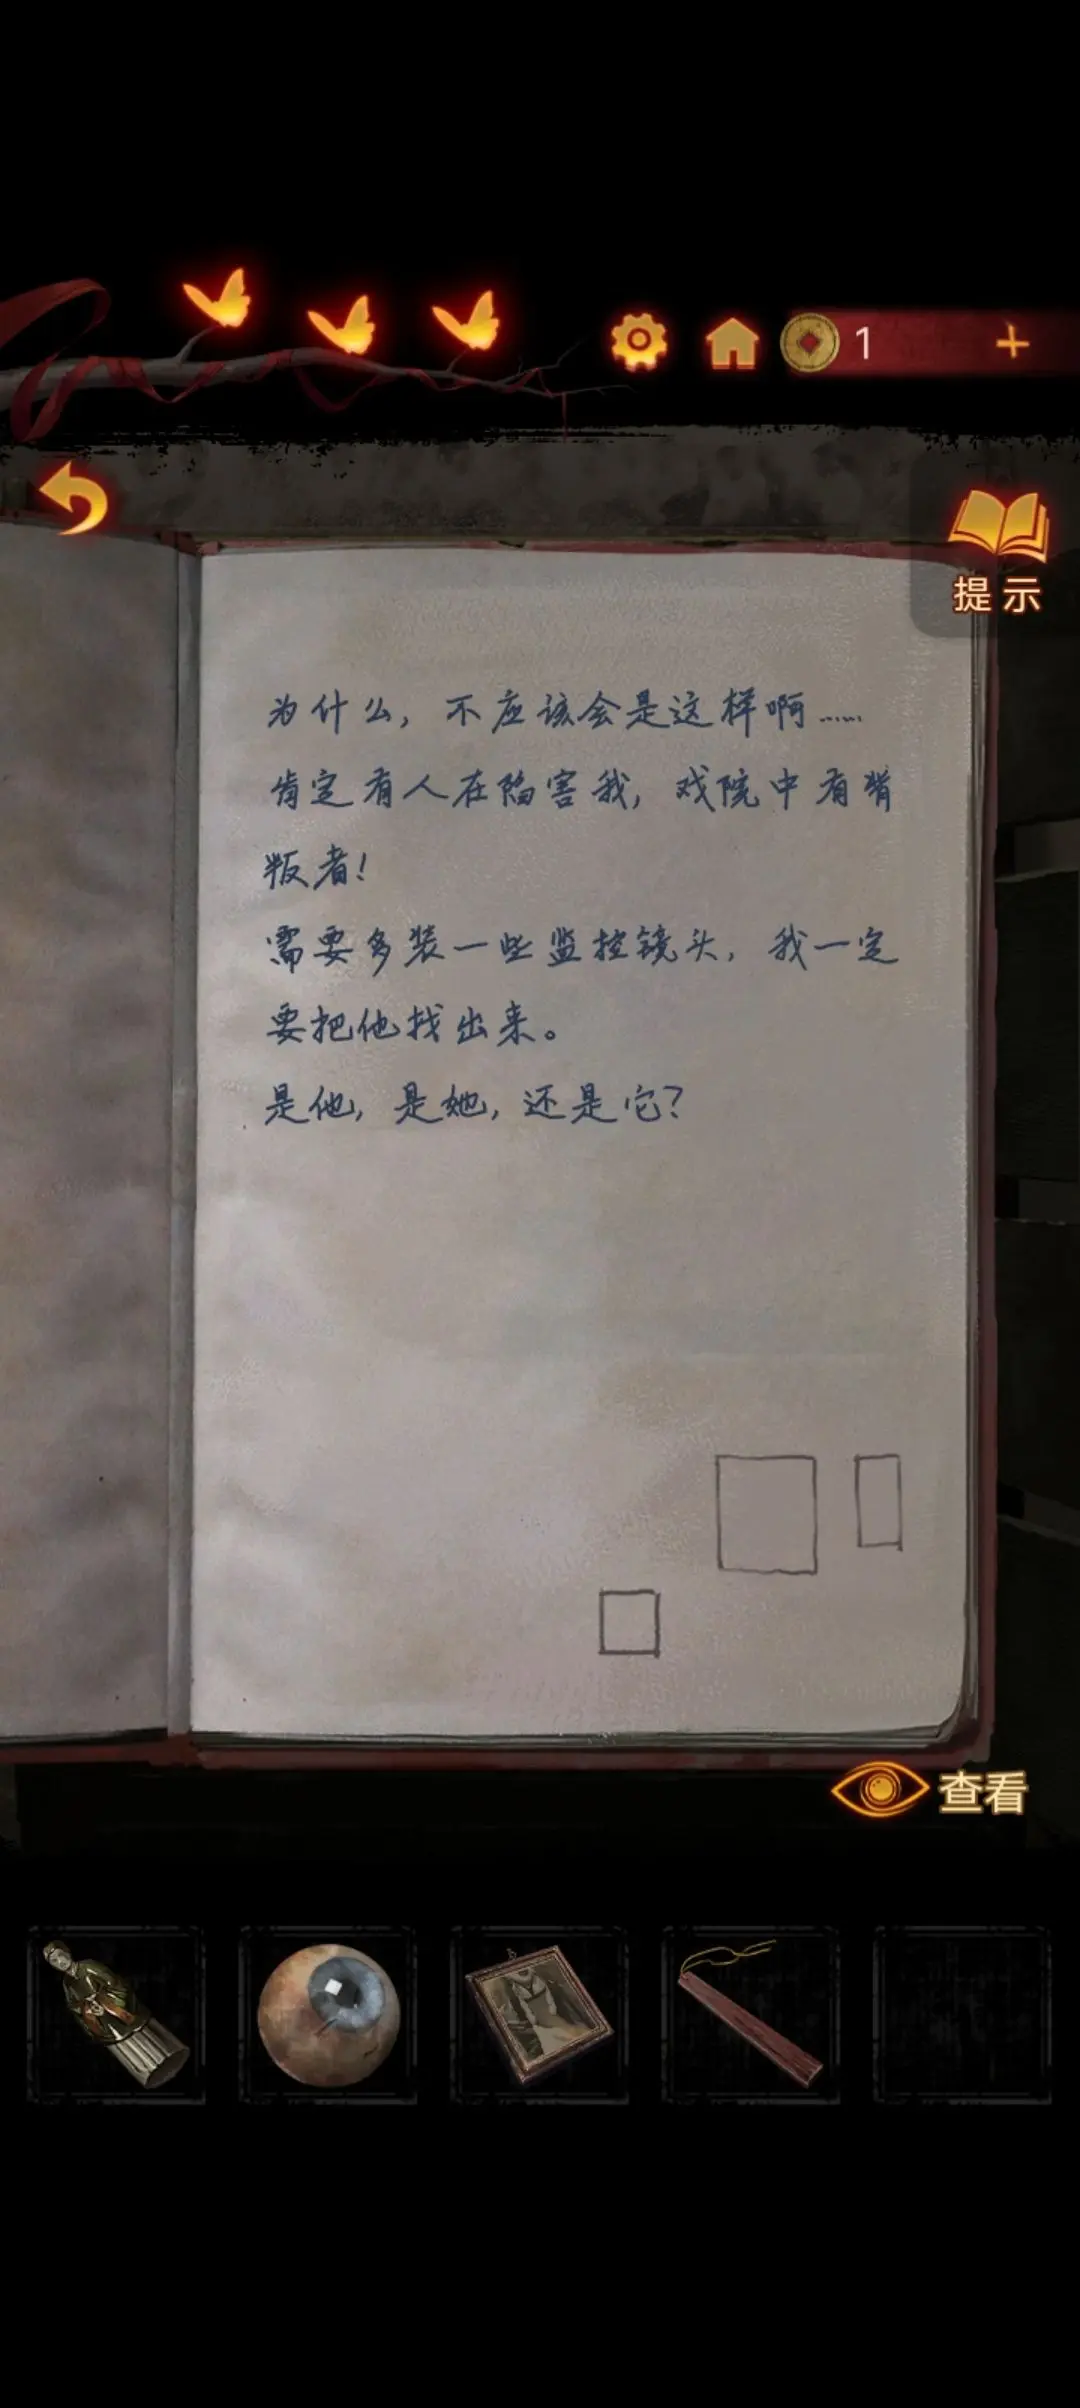 1
提示
为什么，不应该会是这样啊……
肯定有人在陷害我，戏院中有背
叛者！
需要多装一些监控镜头，我一定
要把他找出来。
是他，是她，还是它？
查看